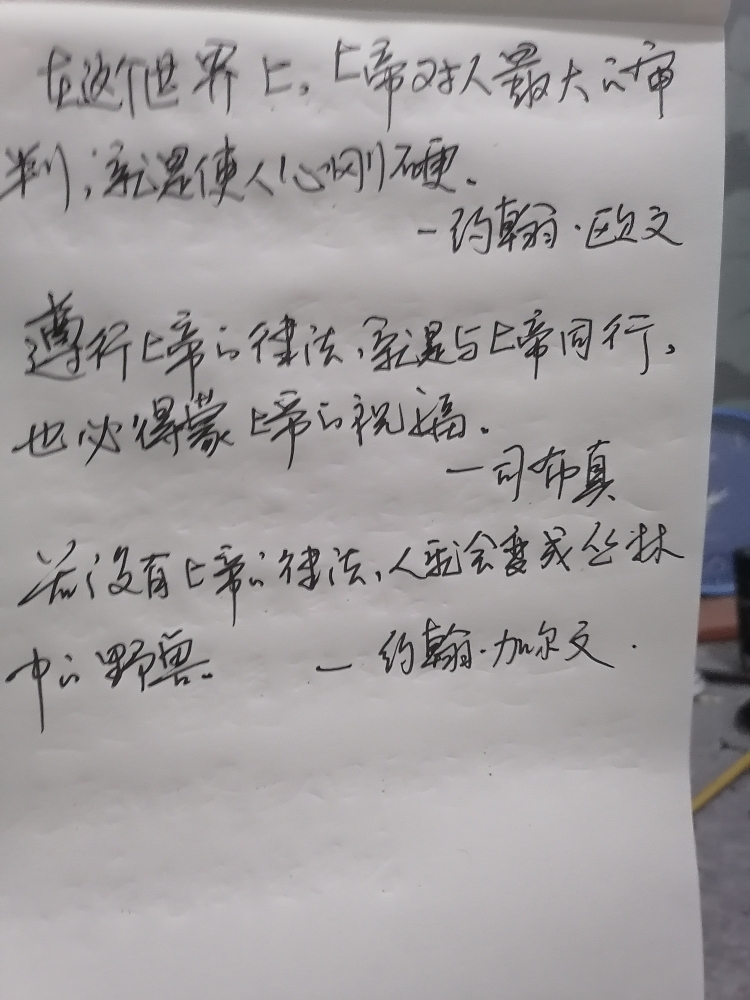 在这个世界上,上帝对人最大的审
判,就是使人心刚硬。
—约翰·欧文
遵行上帝的律法,就是与上帝同行,
也必得蒙上帝的祝福。
—司布真
若没有上帝的律法,人就会变成丛林
中的野兽。 —约翰·加尔文.